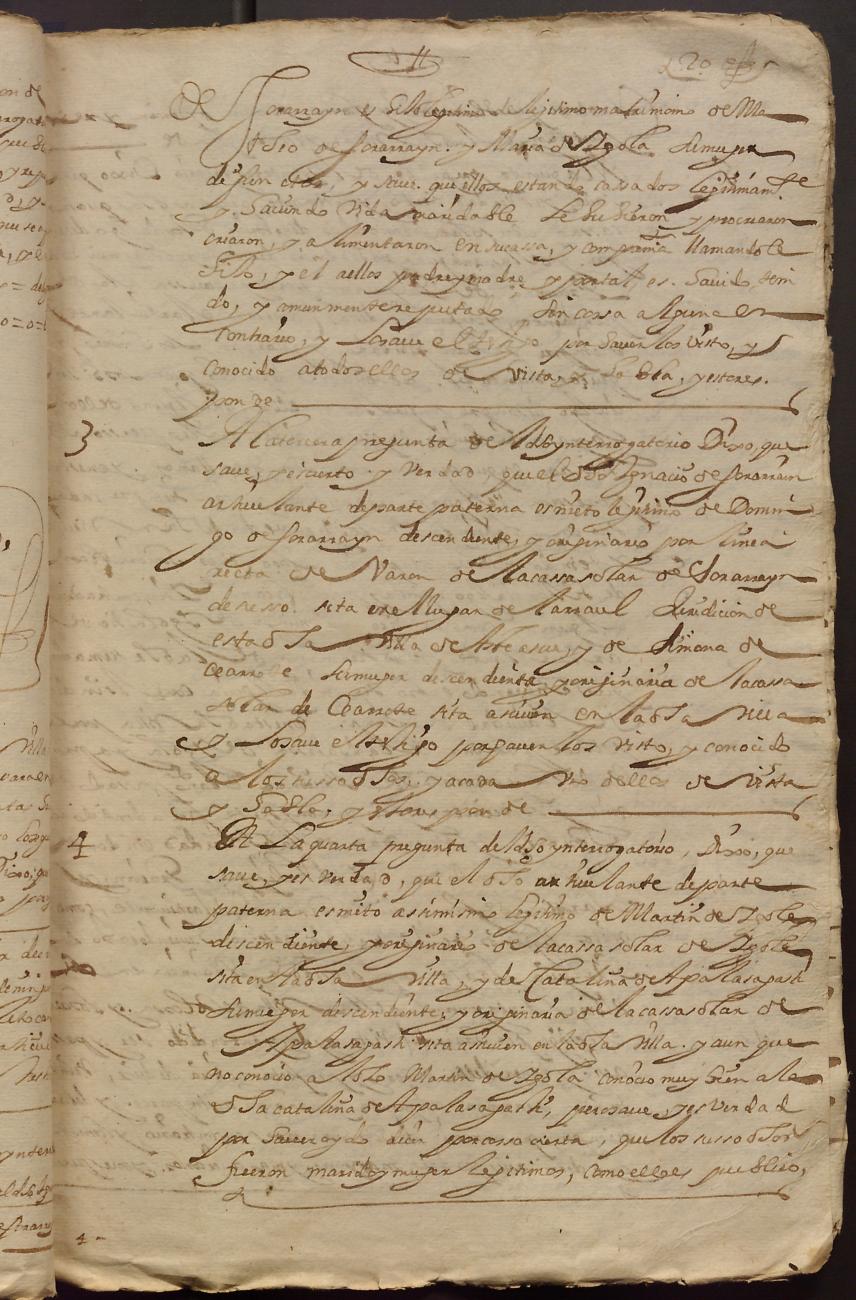 11
De Sorarrayn es hijo legitimo de lejitimo matrimonio de Ma
theo de Sorarrayn y Maria de Ygola su muger
defunctos, y save que ellos estando cassados legitimamte
y haciendo vida maridable le hubieron y procrearon
criaron, y alimentaron en su cassa, y compañia llamandole
hijo, y el a ellos padre y madre y por tal es havido, teni
do, y comunmente reputado sin cossa alguna en
contrario, y lo save el testigo por haverlos visto, y
conocido a todos ellos de vista, y habla, y esto res
ponde
3 A la tercera pregunta del dho ynterrogatorio Dixo, que
save, y es cierto y verdad que el dho Ignacio de Sorarrain
articulante de parte paterna es nieto lejitimo de Domin
go de Sorarrayn descendiente, y originario por linea
recta de Varon de la cassa solar de Sorarrayn
de susso sita en el lugar de Larraul Juridicion de
esta dha Villa de Asteasu, y de Simona de
Cearrote su muger descendienta y originaria de la cassa
solar de Cearrote sita assiven en la dha villa
y lo save el testigo por haverlos visto, y conocido
a los susso dhos, y a cada uno de ellos de vista
y habla, y esto responde
4 A La quarta pregunta del dho ynterrogatorio, Dixo, que
save, y es verdad, que el dho articulante de parte
paterna es nieto assimismo legitimo de Martin de Ygola
descendiente, y originario de la cassa solar de Ygola
sita en la dha Villa, y de Catalina de Apalasapash
su muger descendiente, y originaria de la cassa solar de
Apalasapash sita assiven en la dha Villa y aun que
no conocio al dho Martin de Ygola conocio muy bien a la
dha catalina de Apalasapash, pero save, y es verdad
por haver oydo decir por cossa cierta, que los susso dhos
fueron marido y muger lejitimos, como ello es publico,